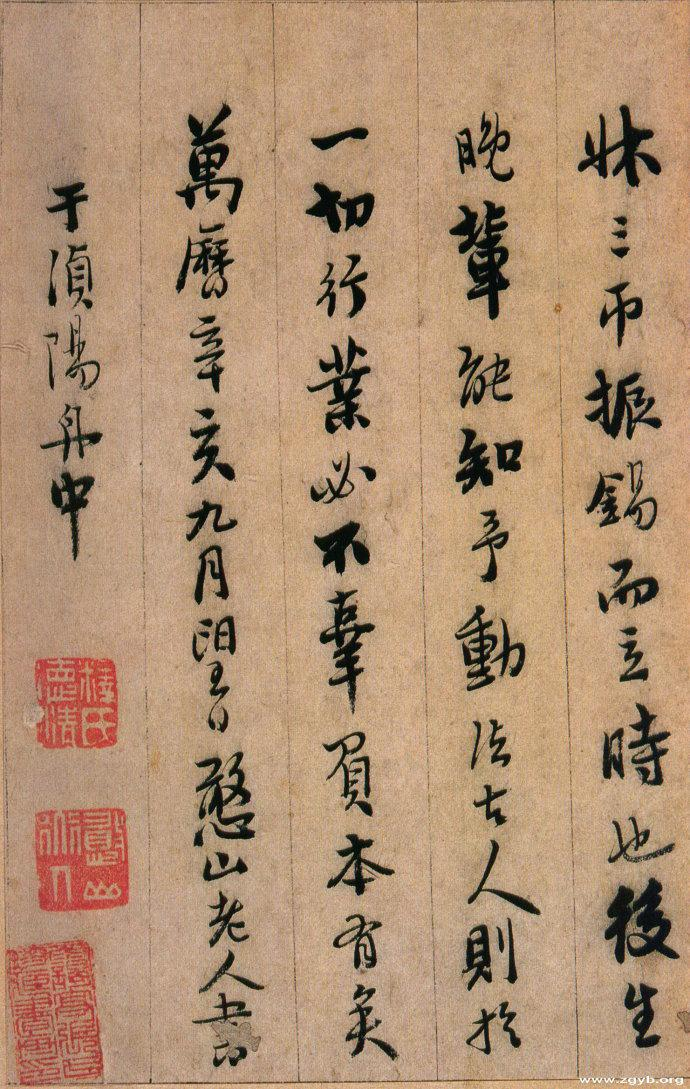 牀三帀振錫而立時也後生
晚輩能知予動法古人則於
一切行業必不辜負本有矣
萬曆辛亥九月望日憨山老人書
于湞陽舟中
憨山
www.zgyb.org